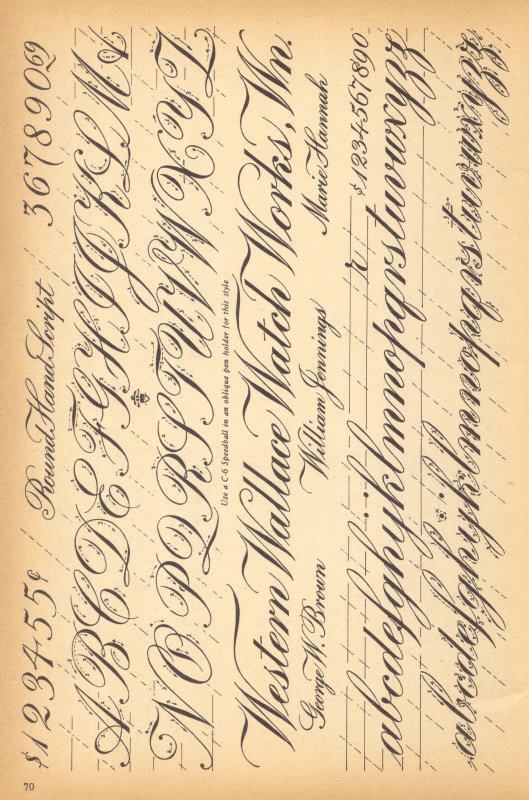 $123455¢ Round Hand Script 367890
ABCDEFGHIJKLM&
NOPQRSTUVWXYZ
Use a C-6 Speedball in an oblique pen holder for this style
Western Wallace Watch Works, Wn.
George W. Brown William Jennings Marie Hannah
r $1234567890
abcdefghijklmnopqrstuvwxyzz
abcdefghijklmnopqrstuvwxyzz
70